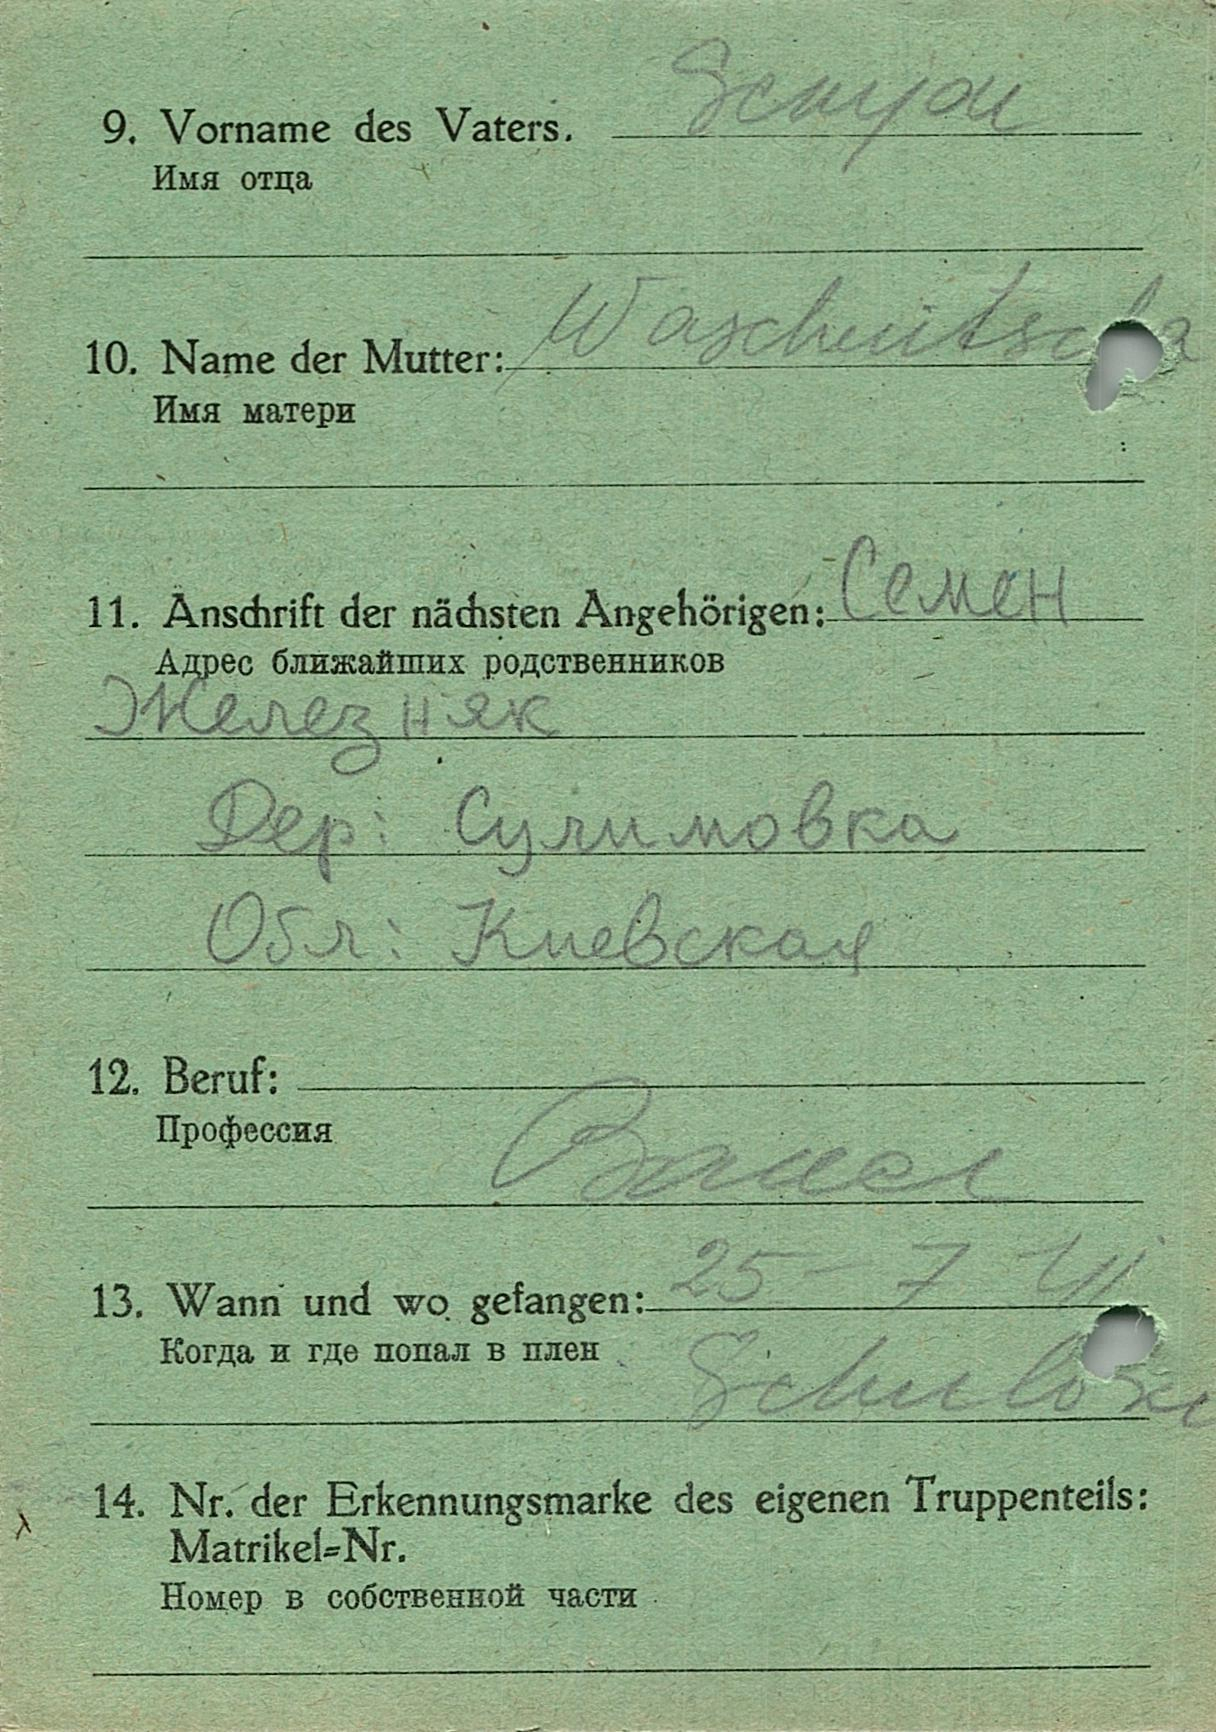 9. Vorname des Vaters. Semjon
Имя отца
10. Name der Mutter:
Имя матери
11. Anschrift der nächsten Angehörigen: Семен
Адрес ближайших родственников
Железняк
Дер: Сулимовка
Обл: Киевская
12. Beruf:
Профессия
Bauer
13. Wann und wo gefangen: 25-7 41
Когда и где попал в плен
14. Nr. der Erkennungsmarke des eigenen Truppenteils:
Matrikel-Nr.
Номер в собственной части